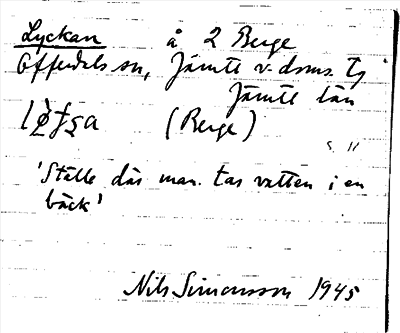 Lyckan å 2 Berge
Offerdals sn, Jämtl v. doms. tj
Jämtl län
(Berge)
s. 11
'Ställe där man tas vatten i en
bäck'
Nils Simonsson 1945